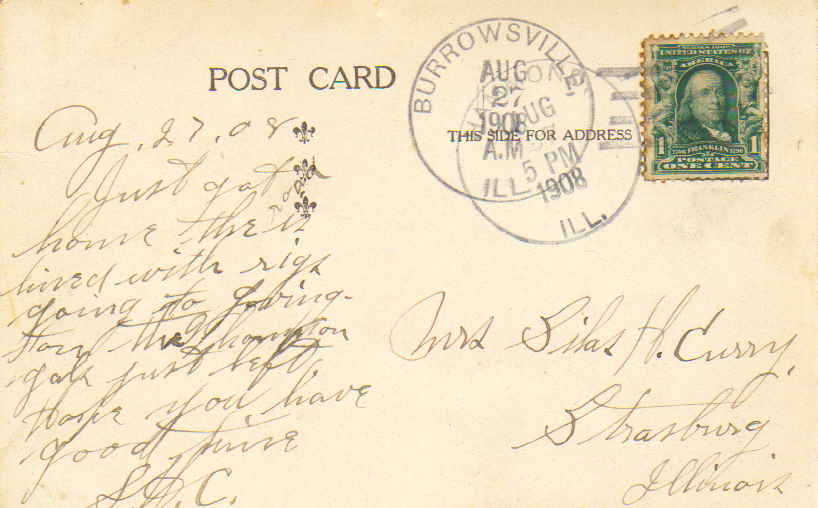 POST CARD
THIS SIDE FOR ADDRESS
BURROWSVILLE
AUG
27
1908
A.M.
ILL.
AUG
5 PM
1908
ILL.
SERIES 1902
AMERICA
1 FRANKLIN 1
POSTAGE
ONE CENT
Aug. 27. 08
Just got
home the is
lined with rigs
going to
just left
hope you have
good time
S.H.C.
Mrs Silas H. Curry,
Strasburg
Illinois